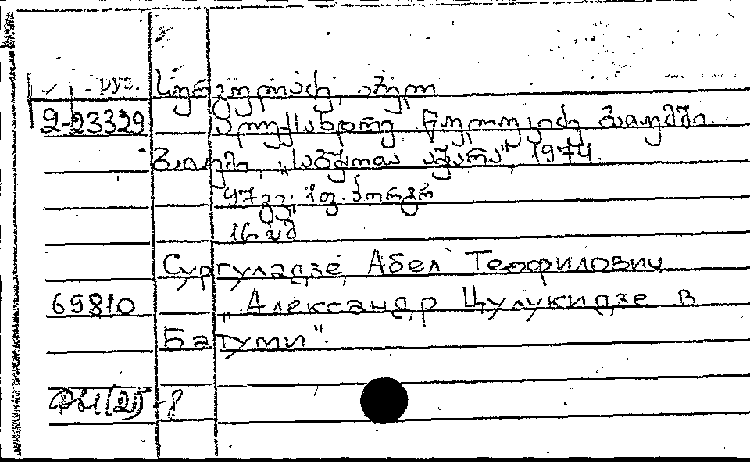 სურგულაძე, აბელ
2-23329 ალექსანდრე წულუკიძე ბათუმში.
ბათუმი, „საბჭოთა აჭარა", 1974.
47 გვ; 1 ფ. პორტრ
16 სმ
Сургуладзе, Абел Теофилович
69810 „Александр Цулукидзе в
Батуми".